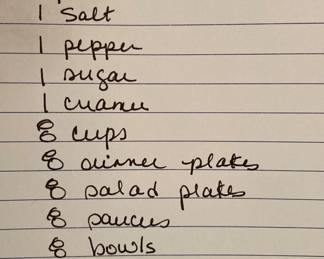 1 Salt
1 pepper
1 sugar
1 creamer
8 cups
8 dinner plates
8 salad plates
8 saucers
8 bowls